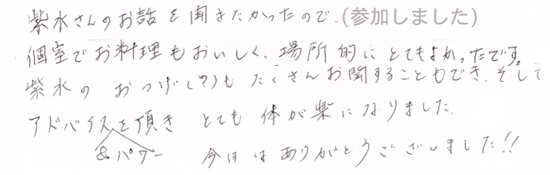 紫水さんのお話を聞きたかったので.(参加しました)
個室でお料理もおいしく、場所的にとてもよかったです。
紫水のおつげ(?)もたくさんお聞することもでき、そして
アドバイスを頂きとても体が楽になりました.
&パワー 今日はありがとうございました!!